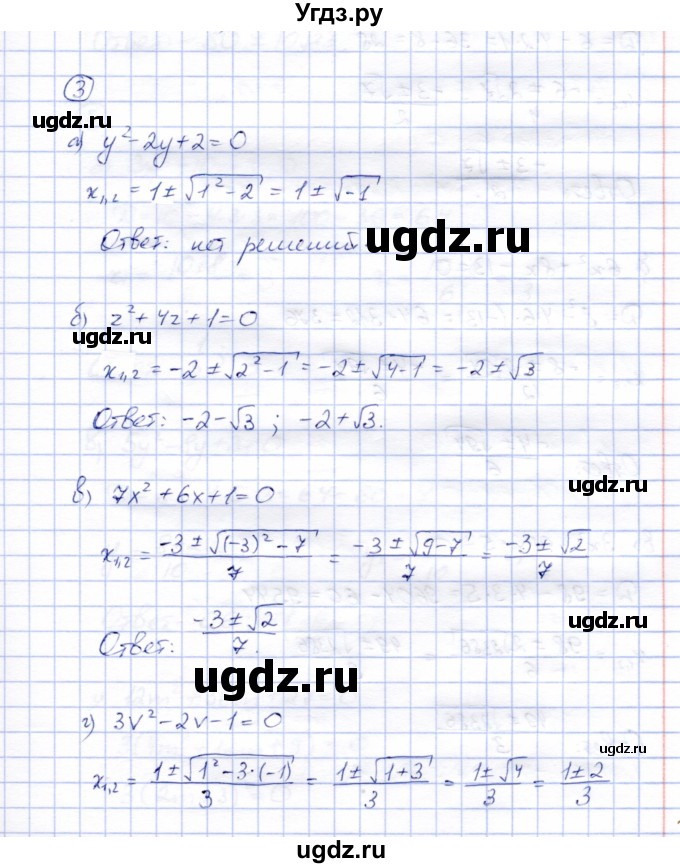 Угдз.ру
3
ugdz.ru
а) y² - 2y + 2 = 0
x₁,₂ = 1 ± √(1² - 2) = 1 ± √-1
Ответ: нет решений.
ugdz.ru
б) z² + 4z + 1 = 0
ugdz.ru
x₁,₂ = -2 ± √(2² - 1) = -2 ± √(4-1) = -2 ± √3
Ответ: -2-√3 ; -2+√3.
ugdz.ru
в) 7x² + 6x + 1 = 0
x₁,₂ = (-3 ± √((-3)² - 7))/7 = (-3 ± √(9-7))/7 = (-3 ± √2)/7
ugdz.ru
Ответ: (-3 ± √2)/7.
ugdz.ru
г) 3v² - 2v - 1 = 0
ugdz.ru
x₁,₂ = (1 ± √(1² - 3·(-1)))/3 = (1 ± √(1+3))/3 = (1 ± √4)/3 = (1 ± 2)/3
ugdz.ru
ugdz.ru